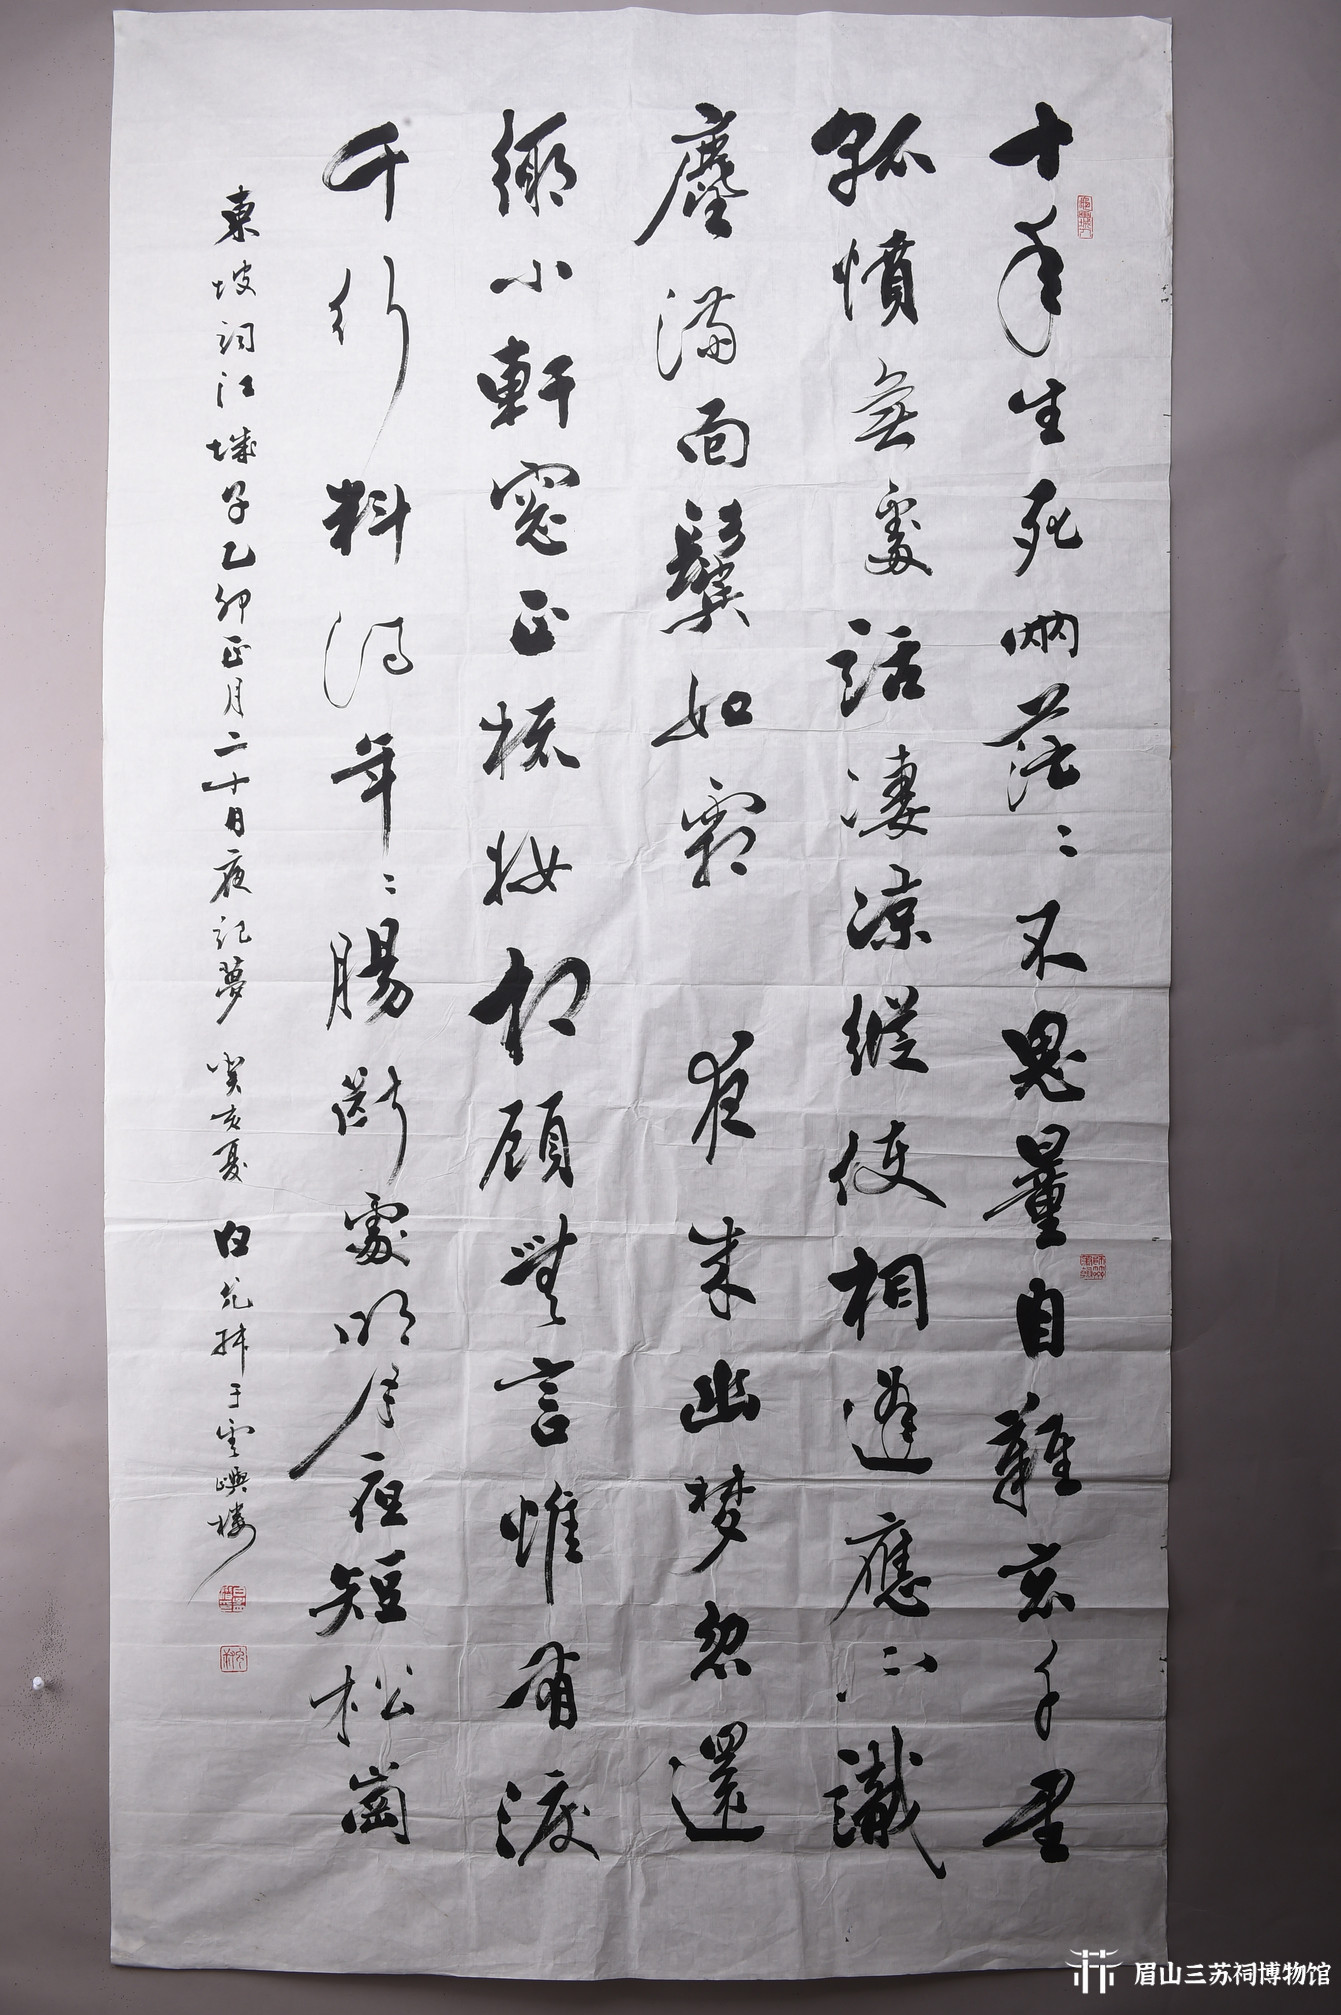 十年生死兩茫〻不思量自難忘千里
孤憤無處話淒涼縱使相逢應不識
塵滿面鬢如霜 夜來幽梦忽還
鄉小軒窓正梳妝相顧無言惟有淚
千行料得年〻腸斷處明月夜短松崗
東坡詞江城子乙卯正月二十日夜記夢 癸亥夏 白允叔于雲嶼樓
眉山三苏祠博物馆